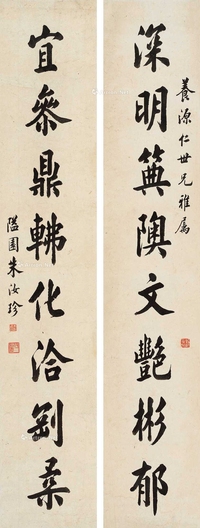 養源仁世兄雅屬
深明隩文艷彬郁
宜叅鼎化洽剛柔
隘園朱汝珍